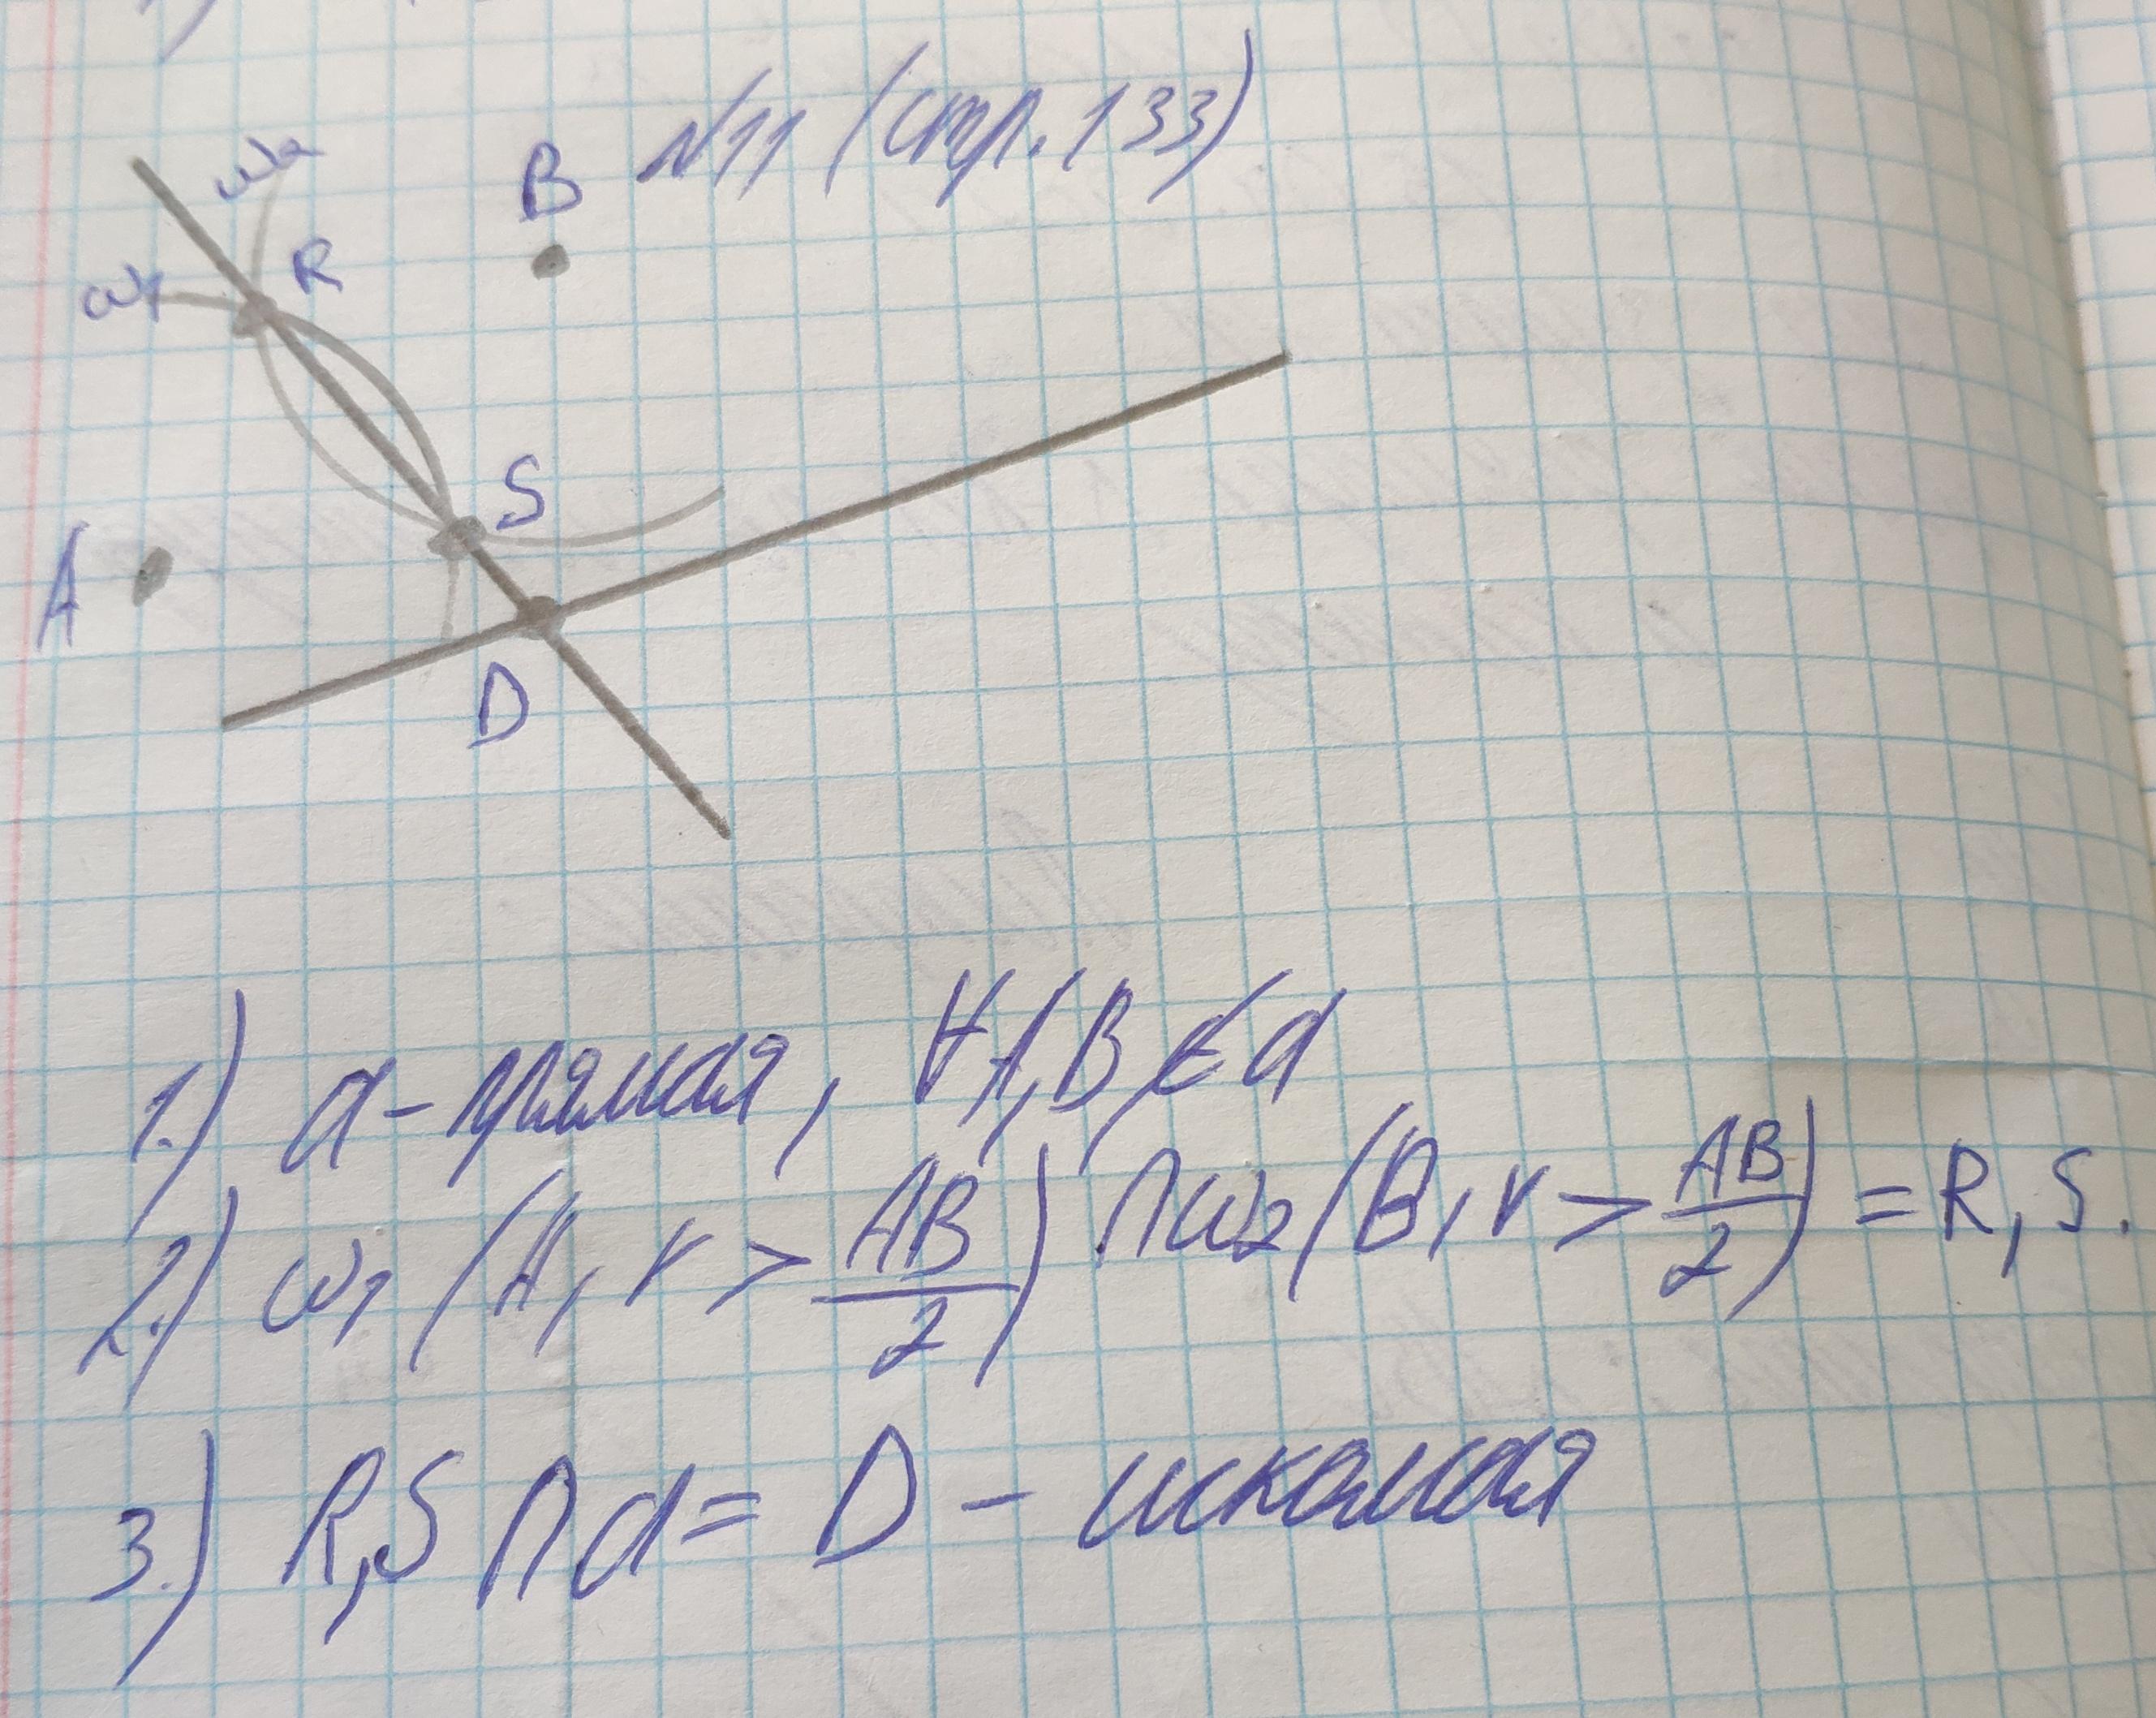 N11 (стр. 133)
ω2
B
R
ω1
S
A
D
1.) a - прямая, ∀A,B ∉ a
2.) ω1 (A, r > AB/2) ∩ ω2 (B, r > AB/2) = R, S.
3.) R,S ∩ a = D - искомая